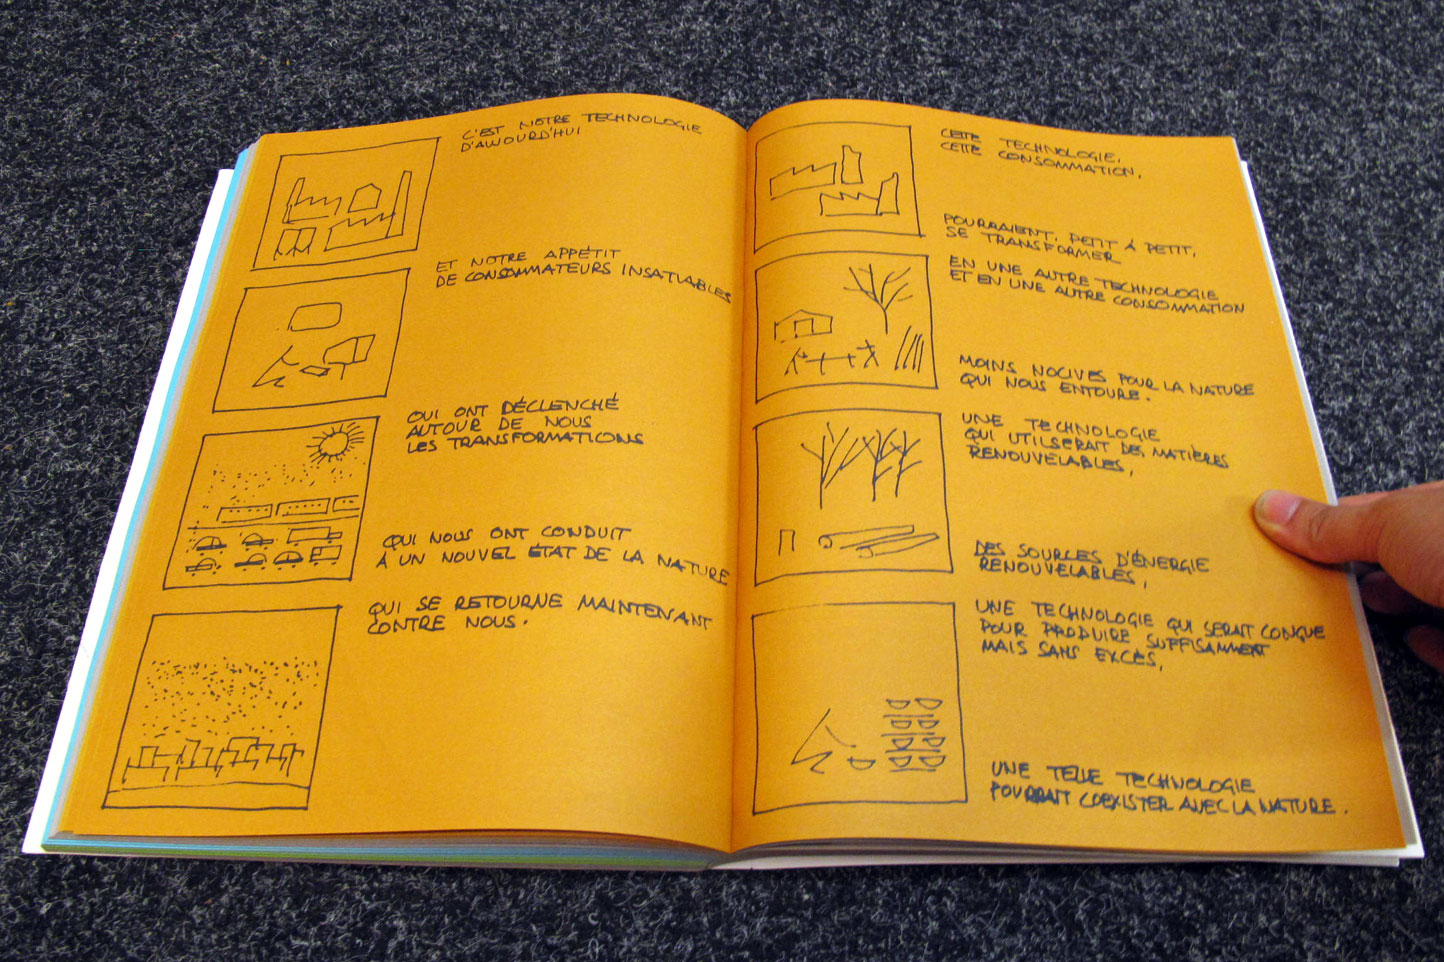 C'EST NOTRE TECHNOLOGIE
D'AUJOURD'HUI
ET NOTRE APPÉTIT
DE CONSOMMATEURS INSATIABLES
QUI ONT DÉCLENCHÉ
AUTOUR DE NOUS
LES TRANSFORMATIONS
QUI NOUS ONT CONDUIT
À UN NOUVEL ÉTAT DE LA NATURE
QUI SE RETOURNE MAINTENANT
CONTRE NOUS.
CETTE TECHNOLOGIE,
CETTE CONSOMMATION,
POURRAIENT, PETIT À PETIT,
SE TRANSFORMER
EN UNE AUTRE TECHNOLOGIE
ET EN UNE AUTRE CONSOMMATION
MOINS NOCIVES POUR LA NATURE
QUI NOUS ENTOURE.
UNE TECHNOLOGIE
QUI UTILSERAIT DES MATIÈRES
RENOUVELABLES,
DES SOURCES D'ÉNERGIE
RENOUVELABLES,
UNE TECHNOLOGIE QUI SERAIT CONÇUE
POUR PRODUIRE SUFFISAMMENT
MAIS SANS EXCÈS,
UNE TELLE TECHNOLOGIE
POURRAIT COEXISTER AVEC LA NATURE.